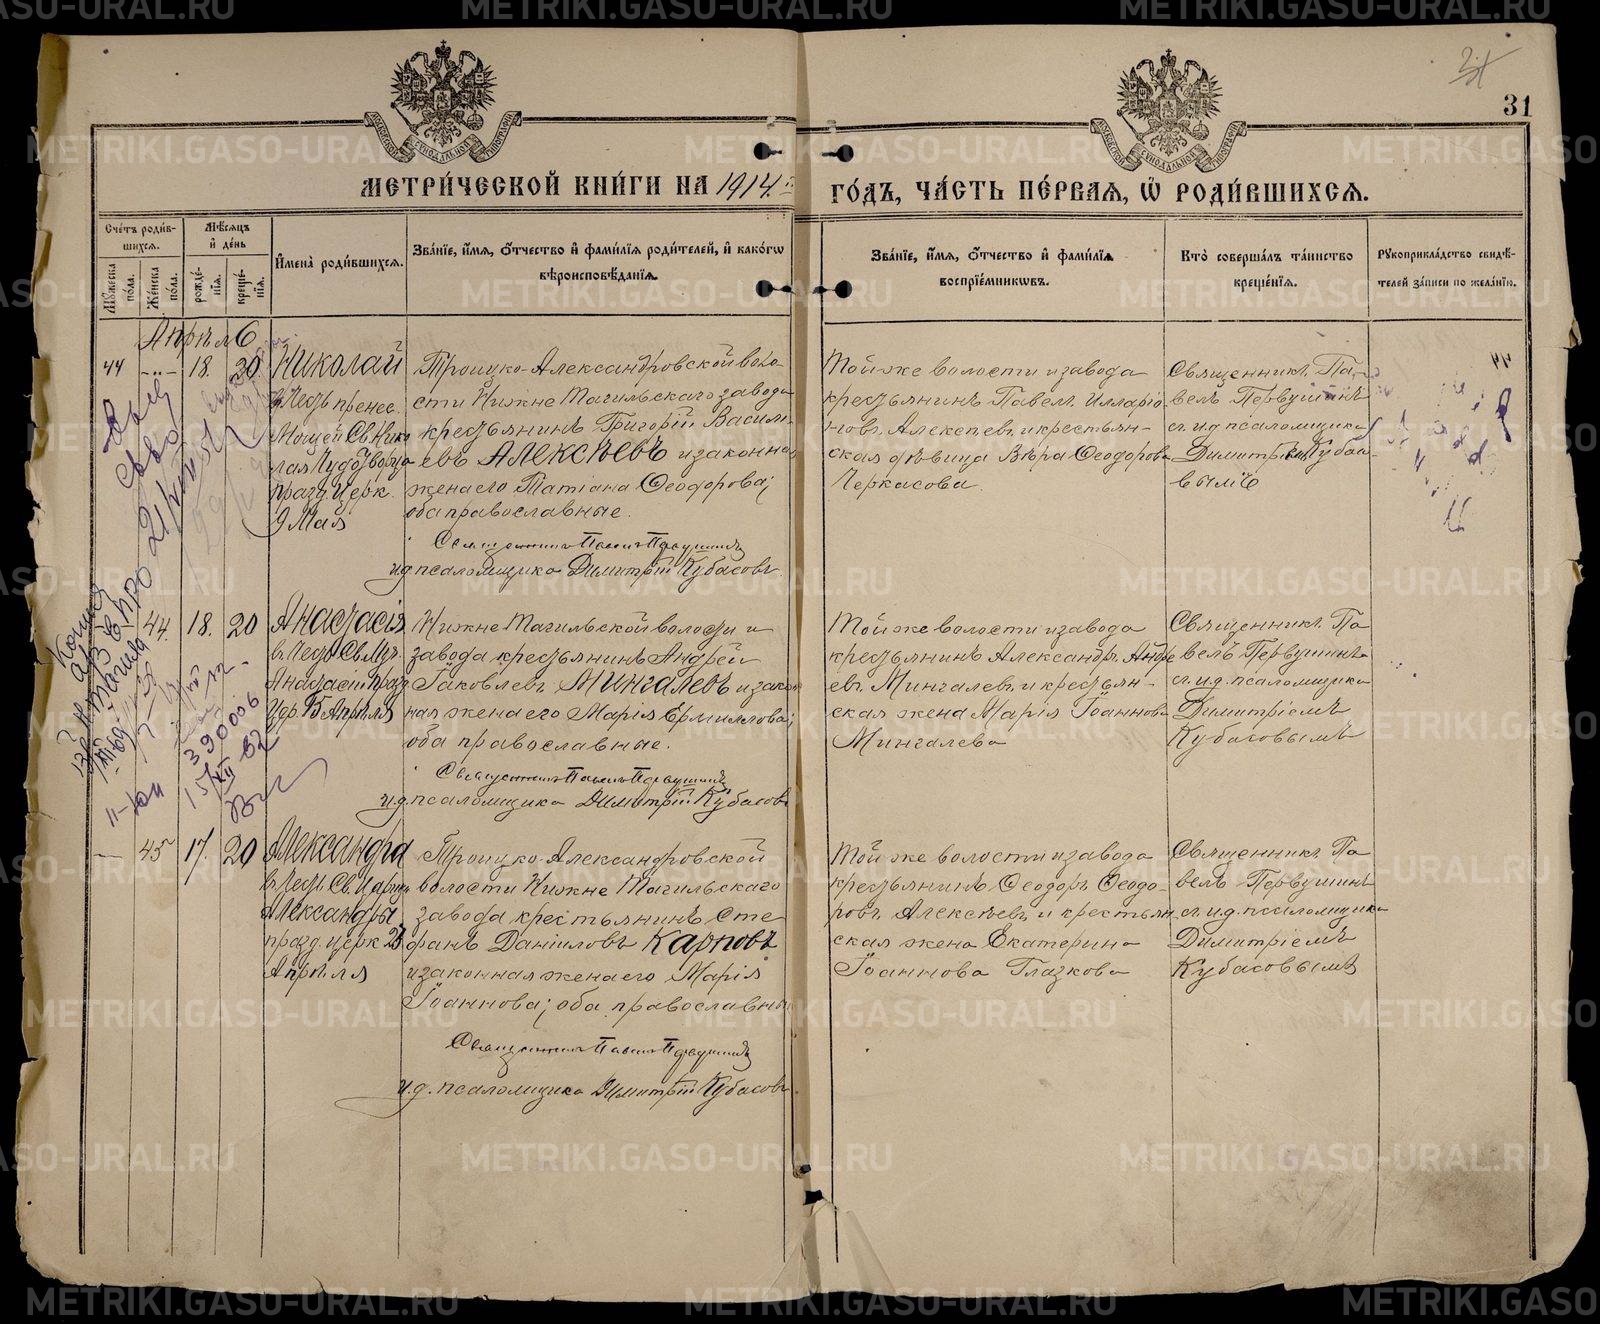 31
МЕТРИ́ЧЕСКОЙ КНИ́ГИ НА 1914 г.
ГО́ДЪ, ЧА́СТЬ ПЕ́РВАЯ, Ѽ РОДИ́ВШИХСЯ.
Сче́тъ роди́в-
шихся.
Му́жеска по́ла.
Же́нска по́ла.
Мѣ́сяцъ и де́нь
рожде́-нїя.
креще́-нїя.
И҆мена̀ роди́вшихся.
Зва́нїе, и҆́мя, ѻ҆́тчество и҆ фами́лїя роди́телей, и҆ како́гѡ
вѣроисповѣ́данїя.
Зва́нїе, и҆́мя, ѻ҆́тчество и҆ фами́лїя
воспрїе́мникѡвъ.
Кто̀ соверша́лъ та́инство
креще́нїя.
Рꙋкоприкла́дство свидѣ́-
телей за́писи по жела́нїю.
Апрѣль
44 18. 30 Николай
въ честь пренес.
Мощей Св. Нико
лая Чудотворца
празд. церк.
9 Мая
Троицко-Александровской воло-
сти Нижне Тагильскаго завода
крестьянинъ Григорій Василь-
евъ Алексѣевъ и законная
жена его Татіана Ѳеодорова;
оба православные.
Священникъ Павелъ Первушинъ
и.д. псаломщика Димитрій Кубасовъ
Той же волости и завода
крестьянинъ Павелъ Илларіо
новъ Алексѣевъ и крестьян-
ская дѣвица Вѣра Ѳеодорова
Черкасова.
Священникъ Па-
велъ Первушинъ
съ и.д. псаломщика
Димитріемъ Кубасо-
вымъ
44. 18. 20 Анастасія
въ честь Св. Мч.
Анастасіи празд.
цер. 15 Апрѣля
Нижне Тагильской волости и
завода крестьянинъ Андрей
Іаковлевъ Мингалевъ и закон
ная жена его Марія Ермиллова;
оба православные.
Священникъ Павелъ Первушинъ
и.д. псаломщика Димитрій Кубасовъ
Той же волости и завода
крестьянинъ Александръ Андре
евъ Мингалевъ и крестьян-
ская жена Марія Іоаннова
Мингалева
Священникъ Па
велъ Первушинъ
съ и.д. псаломщика
Димитріемъ
Кубасовымъ
45 17. 20 Александра
въ честь Св. Цариц
Александры
празд. церк 23
Апрѣля
Троицко-Александровской
волости Нижне Тагильскаго
завода крестьянинъ Сте
фанъ Даніиловъ Карповъ
и законная жена его Марія
Іоаннова; оба православны
Священникъ Павелъ Первушинъ
и.д. псаломщика Димитрій Кубасовъ
Той же волости и завода
крестьянинъ Ѳеодоръ Ѳеодо-
ровъ Алексѣевъ и крестьян
ская жена Екатерина
Іоаннова Глазкова
Священникъ Па
велъ Первушинъ
съ и.д. псаломщика
Димитріемъ
Кубасовымъ
METRIKI.GASO-URAL.RU